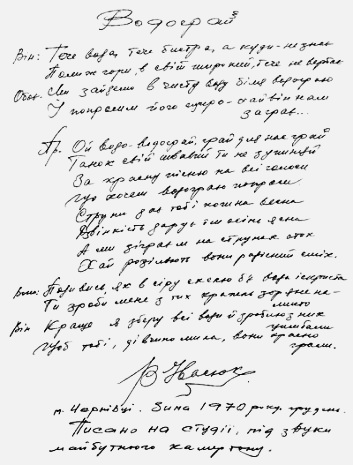 Водограй
Він: Тече вода, тече бистра, а куди - не знає
Поміж гори, в світ широкий, тече не вертає
Ми зайдем в чисту воду біля водограю
Й попросим його щиро - хай він нам
заграє...
Пр. Ой водо-водограй, грай для нас, грай
Танок свій жвавий ти не зупиняй
За красну пісню на всі голоси
Що хочеш водограю попроси
Струни дає тобі кожна весна
Дзвінкість дарує їм осінь ясна
А ми зіграєм на струнах отих
Хай розділяють вони радісний сміх.
Вона: Подивись, як в сіру скелю б'є вода іскриста
Ти зроби мене з тих крапель зоряне на-
мисто
Він Краще я зберу всі води й зроблю з них
цимбали
Щоб тобі, дівчино мила, вони красно
грали.
В Івасюк.
м. Чернівці. Зима 1970 року. грудень.
Писано на студії, під звуки
майбутнього камертону.